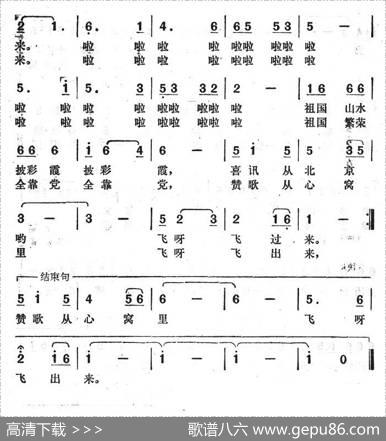 2 1. | 6. 1 | 4. 6 | 65 53 | 5 —
来。 啦 啦 啦 啦 啦啦 啦啦 啦
来。 啦 啦 啦 啦 啦啦 啦啦 啦
5. i | 5. 3 | 53 32 | 2 — | 16 66
啦 啦 啦 啦 啦啦 啦啦 啦 祖国 山水
啦 啦 啦 啦 啦啦 啦啦 啦 祖国 繁荣
66 6 | i 6 4 | 6 — | 5 i 5 | 3 35
披彩 霞 披 彩 霞, 喜 讯 从 北 京
全靠 党 全 靠 党, 赞 歌 从 心 窝
3 — | 3 — | 52 3 | 2 16 | 1 :‖
哟 飞呀 飞 过 来。
里 飞呀 飞 出 来,
结束句
5 i 5 | 4 56 | 6 — | 6 — | 5. 6
赞 歌 从 心 窝 里 飞 呀
2 16 | i — | i — | i — | i 0 ‖
飞 出 来。
高清下载 >>> 歌谱八六 www.gepu86.com